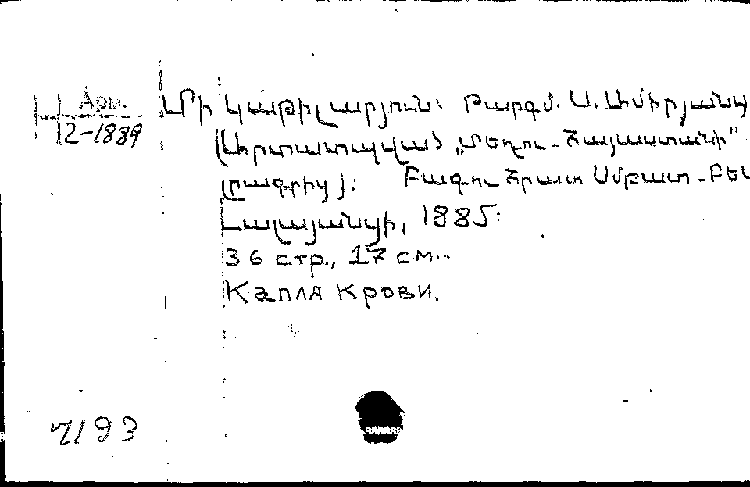 Арм.
2-1889
Մի կաթիլ արյուն: Թարգմ. Ա. Ամիրյանց
(Արտատպված „Մեղու-Հայաստանի"
լրագրից): Բագու հրատ Սմբատ-Բեկ
Լալայանցի, 1885:
36 стр., 17 см..
Капля крови.
7193